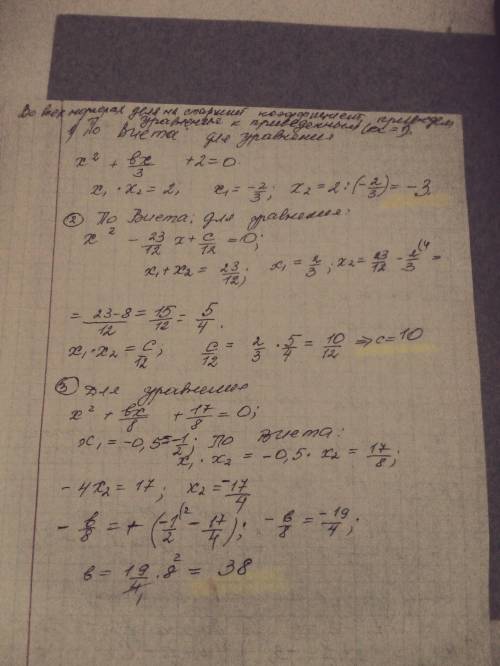 Во всех номерах деля на старший коэффициент, приводим
уравнение к приведенным (a=1).
1) По Виета для уравнения
x² + вx/3 + 2 = 0.
x₁ · x₂ = 2, x₁ = -2/3; x₂ = 2 : (-2/3) = -3.
② По Виета, для уравнения:
x² - 23/12 x + c/12 = 0;
x₁ + x₂ = 23/12; x₁ = 2/3; x₂ = 23/12 - 2/3 (4 =
= 23-8/12 = 15/12 = 5/4.
x₁ · x₂ = c/12; c/12 = 2/3 · 5/4 = 10/12 ⇒ c = 10
③ Для уравнения
x² + вx/8 + 17/8 = 0;
x₁ = -0,5 = -1/2; По Виета:
x₁ · x₂ = -0,5 · x₂ = 17/8;
-4x₂ = 17; x₂ = -17/4
- в/8 = + (-1/2 (2 - 17/4); - в/8 = -19/4;
в = 19/4 · 8² = 38